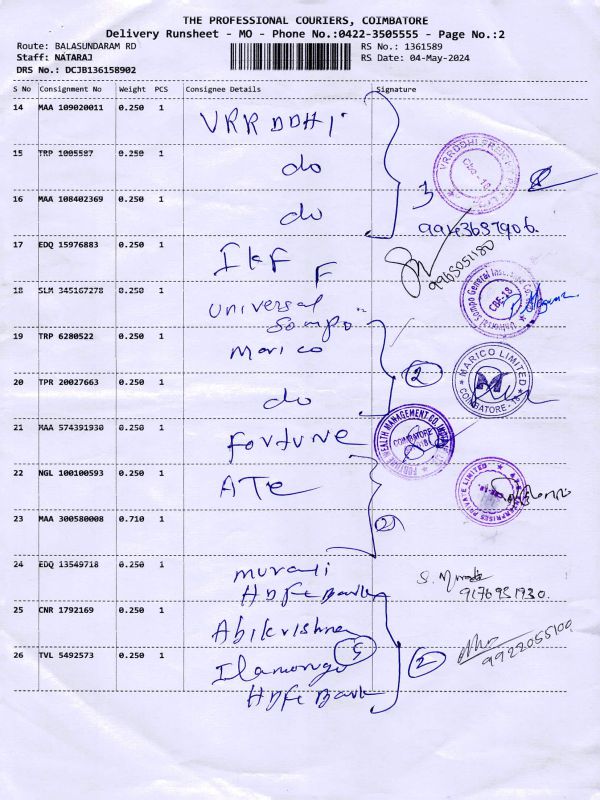 THE PROFESSIONAL COURIERS, COIMBATORE
Delivery Runsheet - MO - Phone No.:0422-3505555 - Page No.:2
Route: BALASUNDARAM RD
RS No.: 1361589
Staff: NATARAJ
RS Date: 04-May-2024
DRS No.: DCJB136158902
S No Consignment No Weight PCS Consignee Details Signature
14 MAA 109020011 0.250 1 VRRDDHI
15 TRP 1005587 0.250 1 do
16 MAA 108402369 0.250 1 do
3
9943687906
17 EDQ 15976883 0.250 1 IKF F
9965051180
18 SLM 345167278 0.250 1 Universal Sompo
CBE-18
19 TRP 6280522 0.250 1 Marico
2
MARICO LIMITED
M
COIMBATORE - 18
20 TPR 20027663 0.250 1 do
21 MAA 574391930 0.250 1 Fortune
WEALTH MANAGEMENT CO.
COIMBATORE
22 NGL 100100593 0.250 1 ATE
PRIVATE LIMITED
23 MAA 300580008 0.710 1
2
24 EDQ 13549718 0.250 1 Murali
HDFC Bank
9176951730
25 CNR 1792169 0.250 1 Abikrishna
26 TVL 5492573 0.250 1 Ilamongo
HDFC Bank
2
9922055100